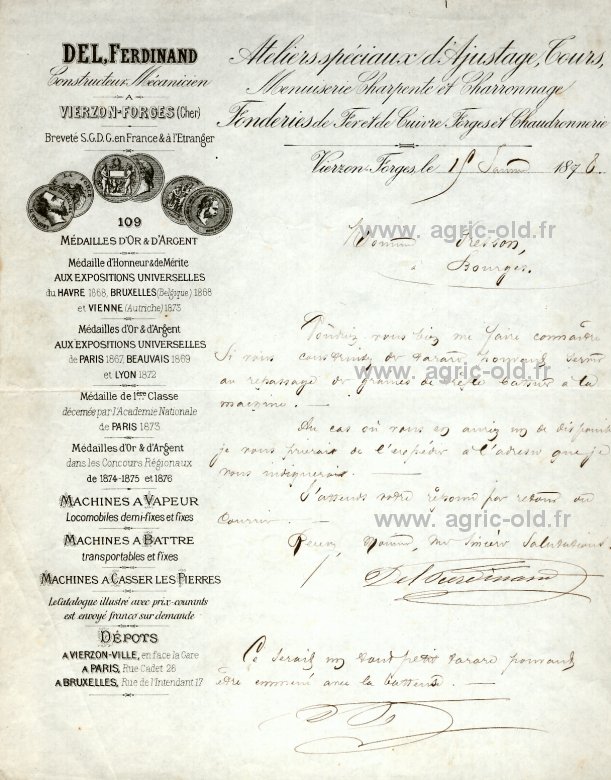 DEL, FERDINAND
Constructeur Mécanicien
A
VIERZON-FORGES (Cher)
Breveté S.G.D.G. en France & à l'Etranger
109
MÉDAILLES D'OR & D'ARGENT
Médaille d'Honneur & de Mérite
AUX EXPOSITIONS UNIVERSELLES
du HAVRE 1868, BRUXELLES (Belgique) 1868
et VIENNE (Autriche) 1873
Médailles d'Or & d'Argent
AUX EXPOSITIONS UNIVERSELLES
de PARIS 1867, BEAUVAIS 1869
et LYON 1872
Médaille de 1ère Classe
décernée par l'Academie Nationale
de PARIS 1873
Médailles d'Or & d'Argent
dans les Concours Régionaux
de 1874-1875 et 1876
MACHINES A VAPEUR
Locomobiles demi-fixes et fixes
MACHINES A BATTRE
transportables et fixes
MACHINES A CASSER LES PIERRES
Le Catalogue illustré avec prix-courants
est envoyé franco sur demande
DÉPOTS
A VIERZON-VILLE, en face la Gare
A PARIS, Rue Cadet 26
A BRUXELLES, Rue de l'Intendant 17
Ateliers spéciaux d'Ajustage, Tours,
Menuiserie Charpente et Charronnage
Fonderies de Fer et de Cuivre Forges et Chaudronnerie
Vierzon-Forges, le 187
www. agric-old.fr
Monsieur
à Bourges.
Voudriez vous bien me faire connaître
Si vous construisez de tarare pouvant servir
www. agric-old.fr
au repassage de graines de trèfle battus à la
machine. —
Au cas où vous en auriez un de disponible
je vous prierais de l'expédier à l'adresse que je
vous indiquerais. —
J'attends votre réponse par retour du
www. agric-old.fr
Courrier. —
Recevez, Monsieur, mes sincères salutations.
Del Ferdinand
Ce serait un tout petit tarare pouvant
être emmené avec la batteuse. —